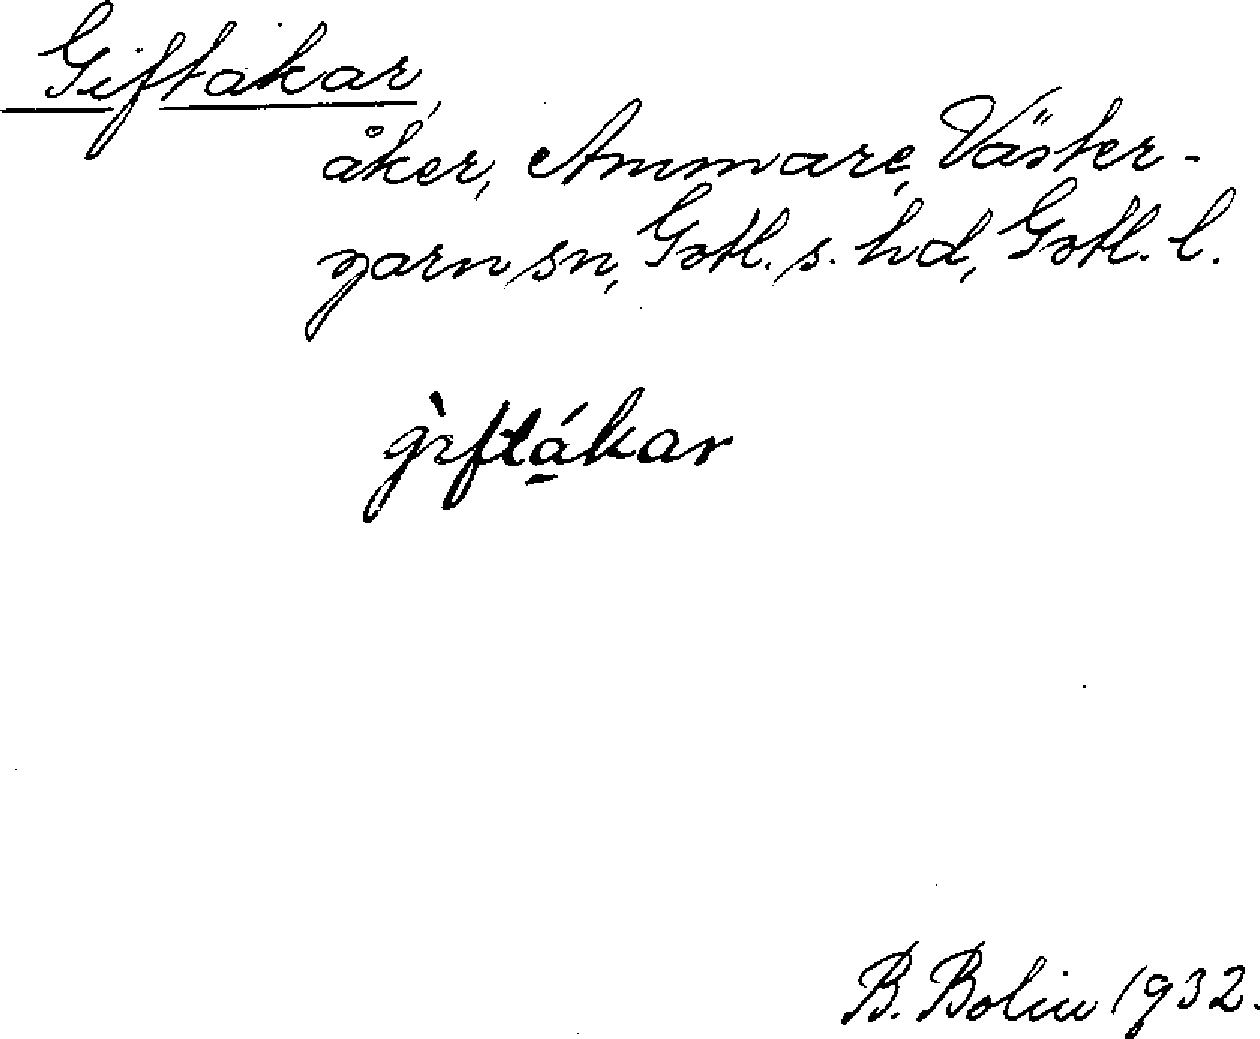 Giftakar,
åker, Ammare, Väster-
garn sn, Gotl. s. hd, Gotl. l.
gìftákar
B. Bolin 1932.